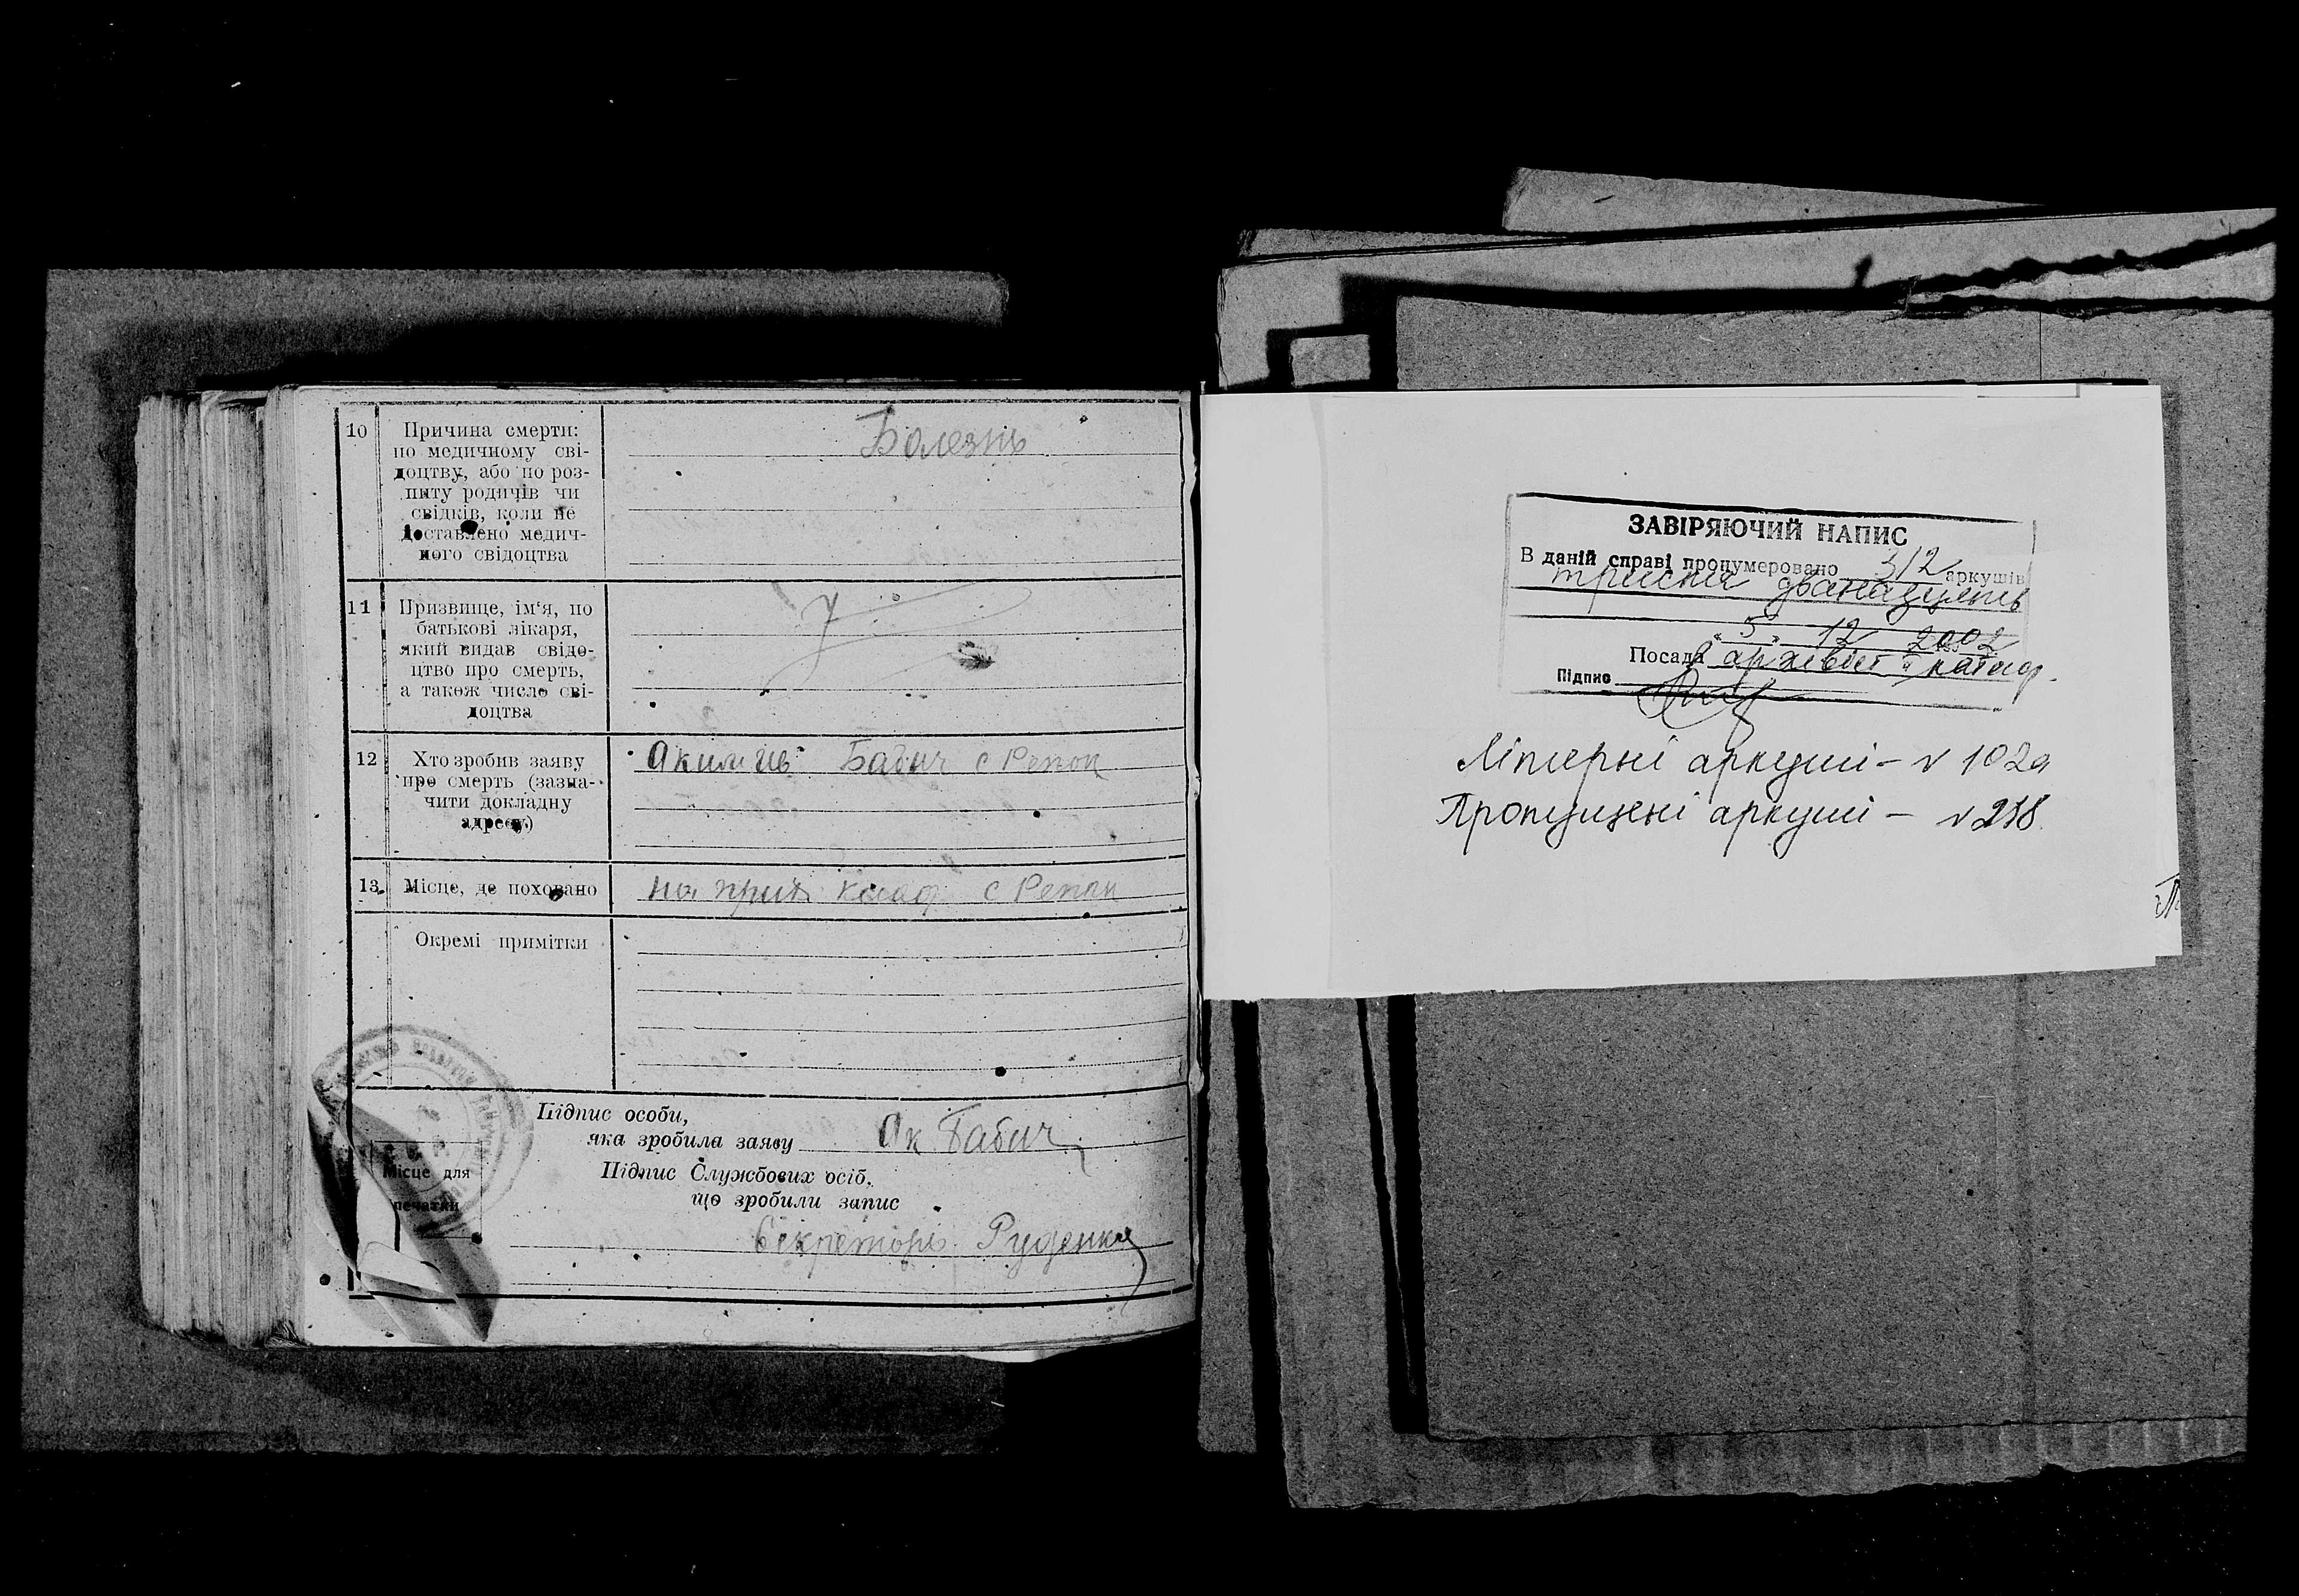 10
Причина смерти:
по медичному сві-
доцтву, або по роз-
питу родичів чи
свідків, коли не
доставлено медич-
ного свідоцтва
Болезнь
11
Призвище, ім'я, по
батькові лікаря,
який видав свідо-
цтво про смерть,
а також число сві-
доцтва
12
Хто зробив заяву
про смерть (зазна-
чити докладну
адресу)
Бабич с Репок
13.
Місце, де поховано
на прих клад с Репок
Окремі примітки
Підпис особи,
яка зробила заяву Ак Бабич
Підпис Службових осіб,
що зробили запис
Місце для
печатки
Секреторь Руденко
ЗАВІРЯЮЧИЙ НАПИС
В даній справі пронумеровано 312 аркушів
триста дванадцять
"5" 12 2002
Посада архівіст
Підпис
Літерні аркуші - 102а
Пропущені аркуші -